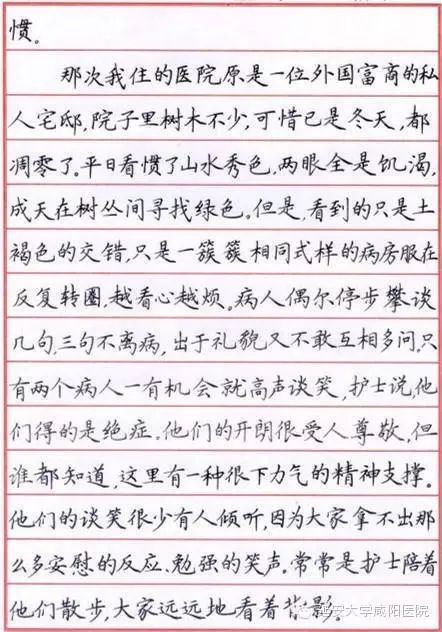 惯。
那次我住的医院原是一位外国富商的私
人宅邸,院子里树木不少,可惜已是冬天,都
凋零了。平日看惯了山水秀色,两眼全是饥渴,
成天在树丛间寻找绿色。但是,看到的只是土
褐色的交错,只是一簇簇相同式样的病房服在
反复转圈,越看心越烦。病人偶尔停步攀谈
几句,三句不离病,出于礼貌又不敢互相多问。只
有两个病人一有机会就高声谈笑,护士说,他
们得的是绝症。他们的开朗很受人尊敬,但
谁都知道,这里有一种很下力气的精神支撑。
他们的谈笑很少有人倾听,因为大家拿不出那
么多安慰的反应、勉强的笑声。常常是护士陪着
他们散步,大家远远地看着背影。
延安大学咸阳医院